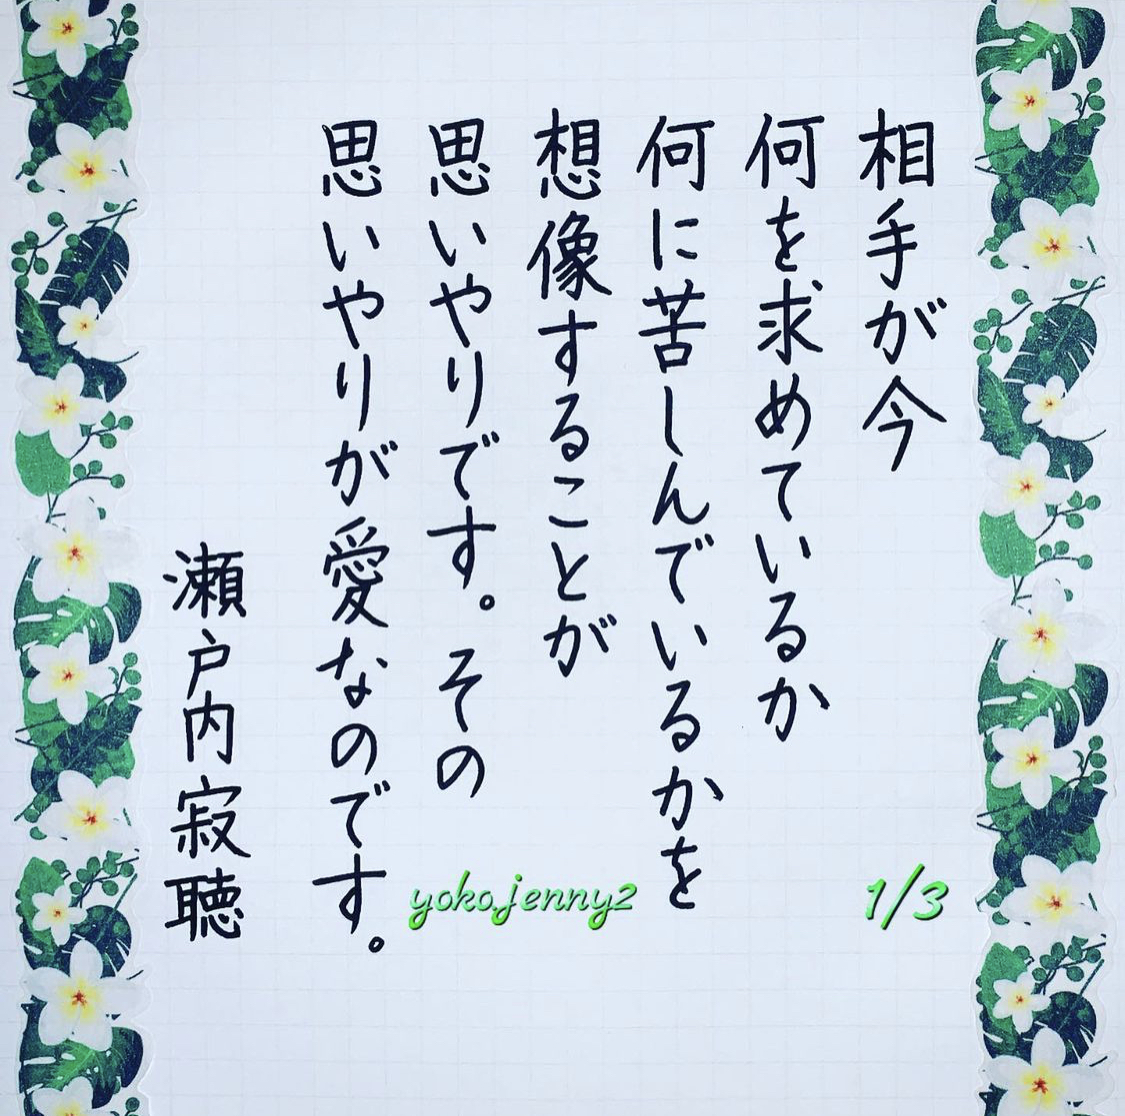 相手が今
何を求めているか
何に苦しんでいるかを
想像することが
思いやりです。その
思いやりが愛なのです。
瀬戸内寂聴
yoko.jenny2
1/3